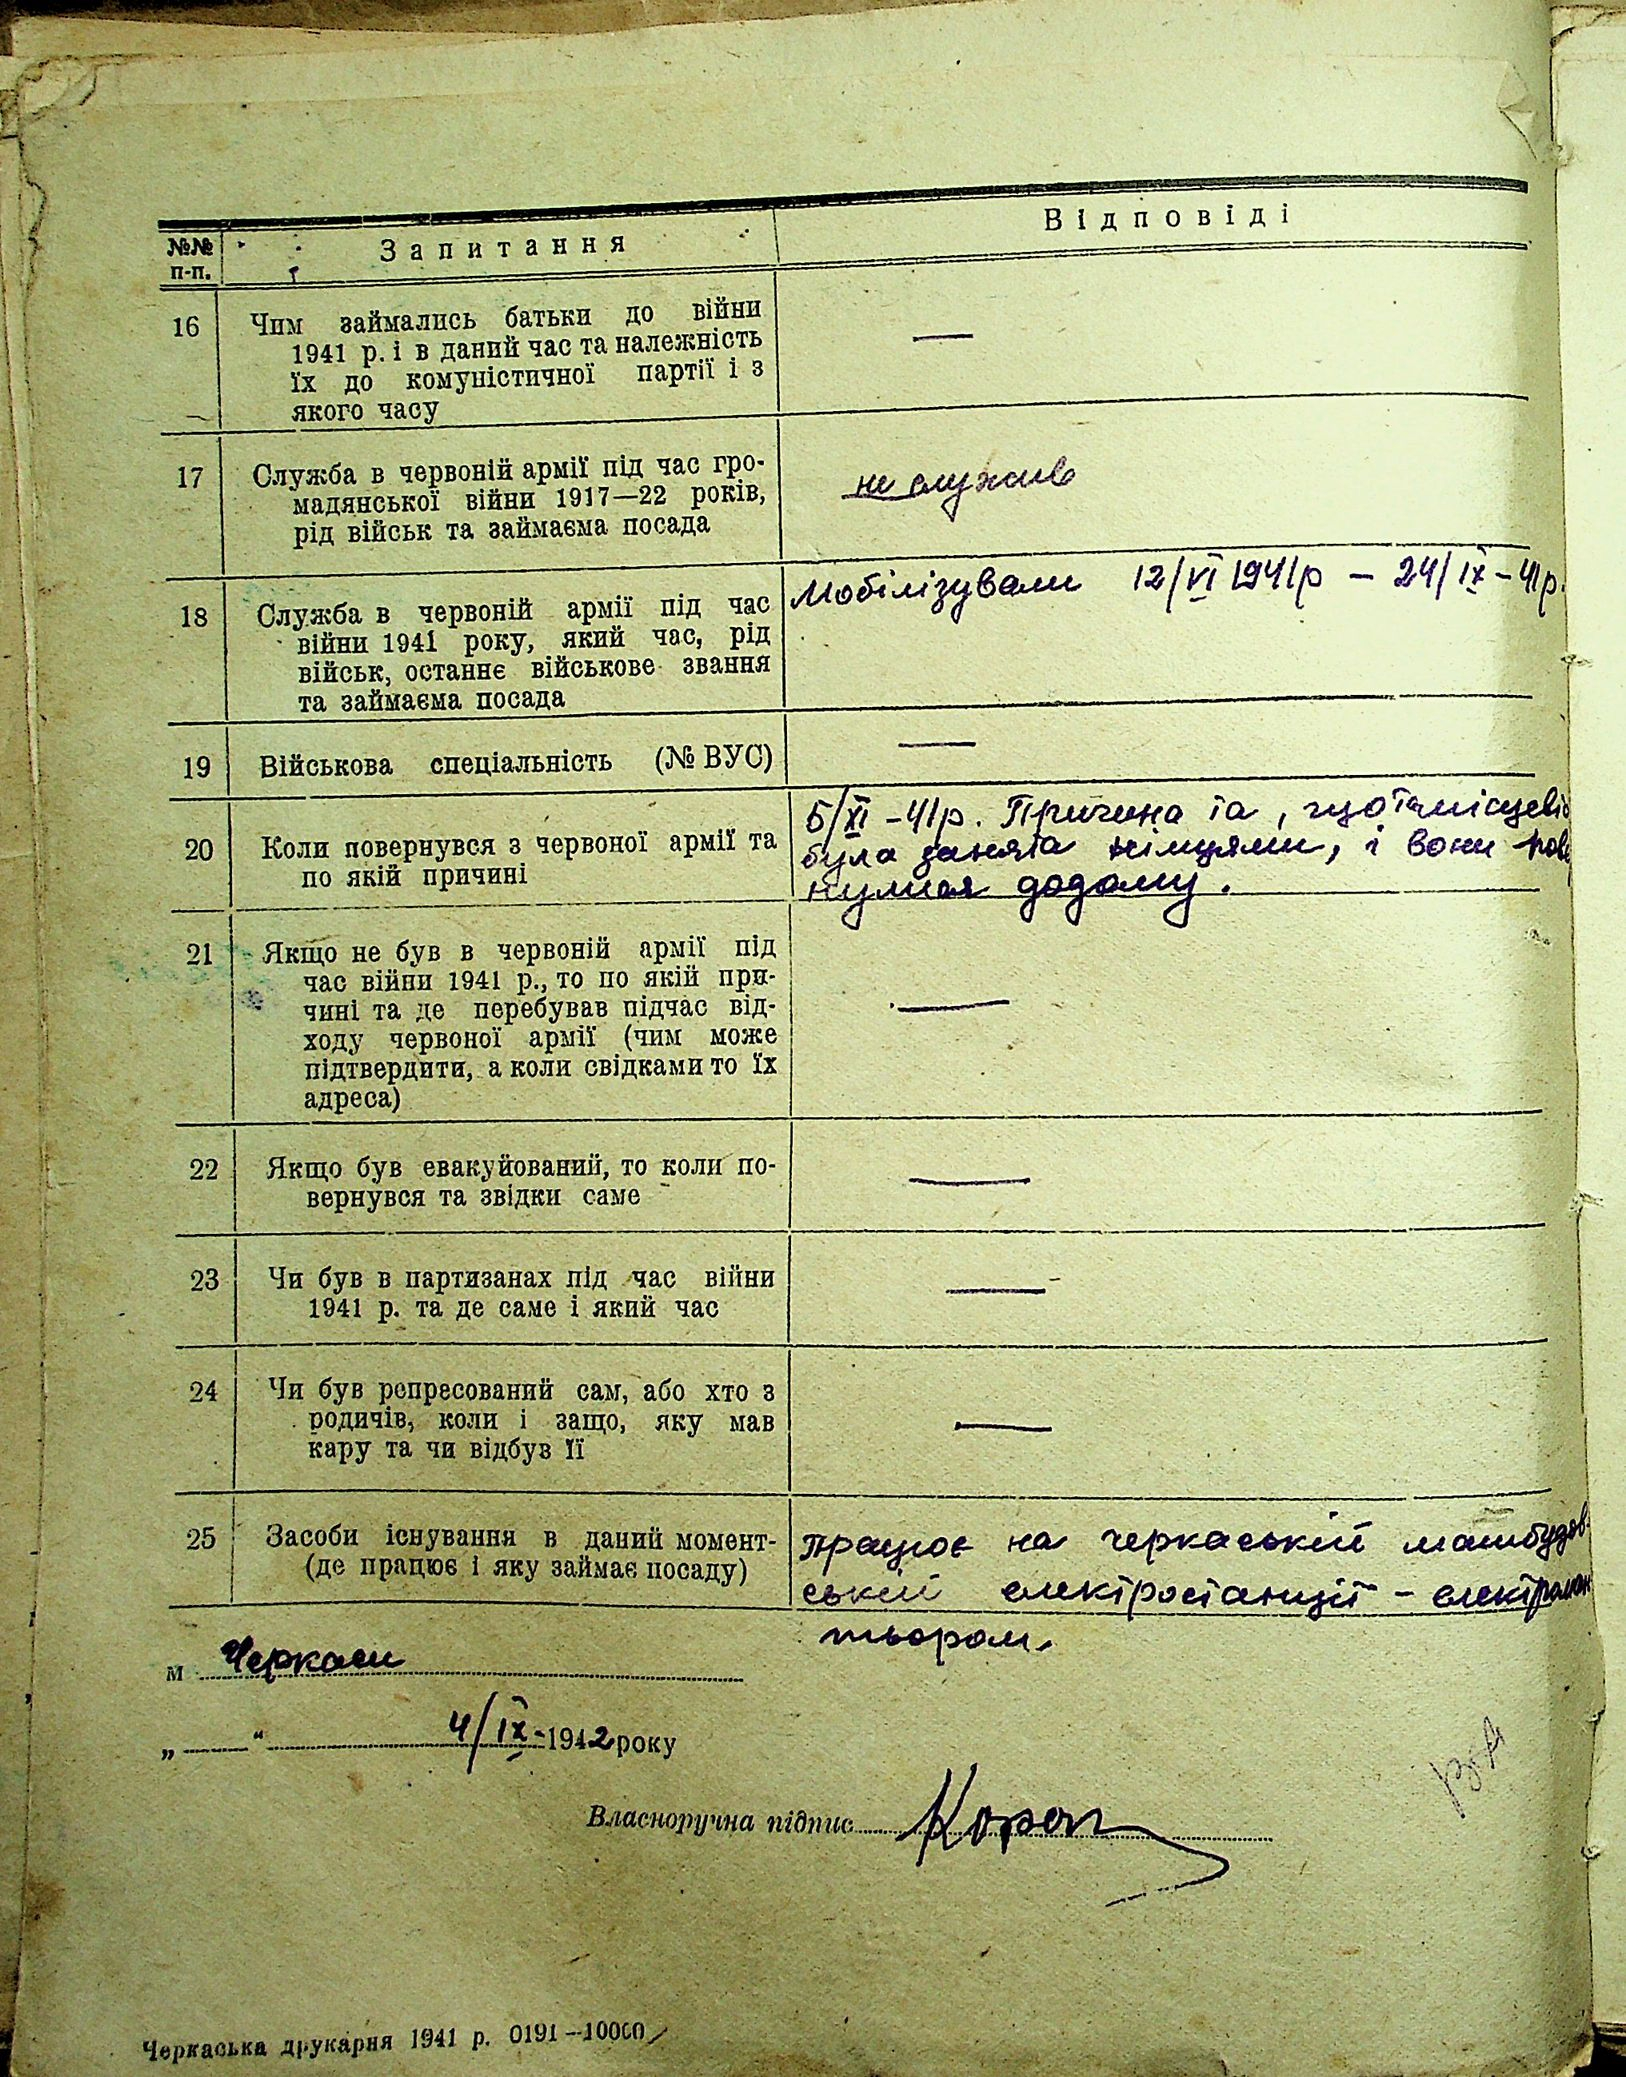 №№ п-п.
Запитання
Відповіді
16
Чим займались батьки до війни
1941 р. і в даний час та належність
їх до комуністичної партії і з
якого часу
—
17
Служба в червоній армії під час гро-
мадянської війни 1917—22 років,
рід військ та займаєма посада
не служив
18
Служба в червоній армії під час
війни 1941 року, який час, рід
військ, останнє військове звання
та займаєма посада
Мобілізували 12/VI 1941р – 24/IX – 41р.
19
Військова спеціальність (№ ВУС)
—
20
Коли повернувся з червоної армії та
по якій причині
5/XI – 41р. Причина та, що
була занята німцями, і вони
нулися додому.
21
Якщо не був в червоній армії під
час війни 1941 р., то по якій при-
чині та де перебував підчас від-
ходу червоної армії (чим може
підтвердити, а коли свідками то їх
адреса)
—
22
Якщо був евакуйований, то коли по-
вернувся та звідки саме
—
23
Чи був в партизанах під час війни
1941 р. та де саме і який час
—
24
Чи був репресований сам, або хто з
родичів, коли і защо, яку мав
кару та чи відбув її
—
25
Засоби існування в даний момент-
(де працює і яку займає посаду)
працює на черкаській машбудов-
ській електростанції – електромон
тьором.
м Черкаси
„ — “ 4/IX - 1942 року
Власноручна підпис
Черкаська друкарня 1941 р. 0191—10000